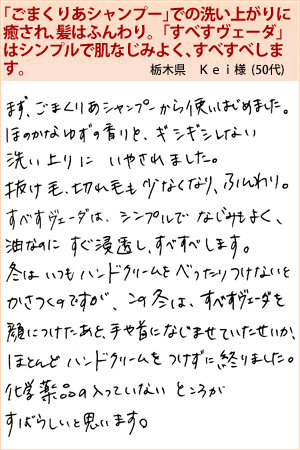 「ごまくりあシャンプー」での洗い上がりに
癒され､髪はふんわり。「すべすヴェーダ」
はシンプルで肌なじみよく､すべすべしま
す。
栃木県　Ｋｅｉ様 (50代)
まず、ごまくりあシャンプーから使いはじめました。
ほのかなゆずの香りと、ギシギシしない
洗い上りに いやされました。
抜け毛、切れ毛も少なくなり、ふんわり。
すべすヴェーダは、シンプルで なじみもよく、
油なのに すぐ浸透し、すべすべします。
冬は いつも ハンドクリームを べったりつけないと
かさつくのですが、この冬は、すべすヴェーダを
顔につけたあと、手や首になじませていたせいか、
ほとんど ハンドクリームを つけずに 終りました。
化学薬品の入っていない ところが
すばらしいと思います。